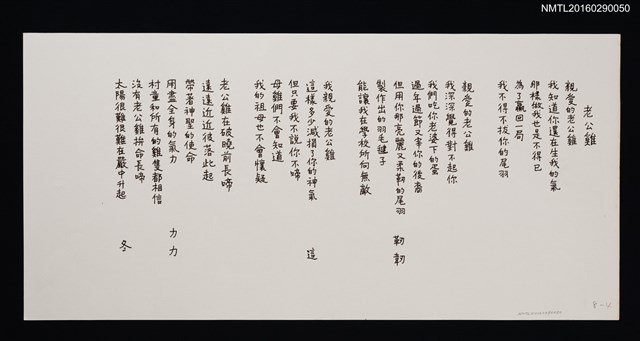 NMTL20160290050
老公雞
親愛的老公雞
我知道你還在生我的氣
那樣做我也是不得已
為了贏回一局
我不得不拔你的尾羽
親愛的老公雞
我深深覺得對不起你
我們吃你老婆下的蛋
過年過節又宰你的後裔
但用你那亮麗又柔軔的尾羽 軔 韌
製作出的羽毛毽子
能讓我在學校所向無敵
我親愛的老公雞
這樣多少減損了你的神氣 這
但只要我不說你不啼
母雞們不會知道
我的祖母也不會懷疑
老公雞在破曉前長啼
遠遠近近彼落此起
帶著神聖的使命
用盡全身的氣力 力 力
村童和所有的雞隻都相信
沒有老公雞拚命長啼
太陽很難很難在嚴冬中升起 冬